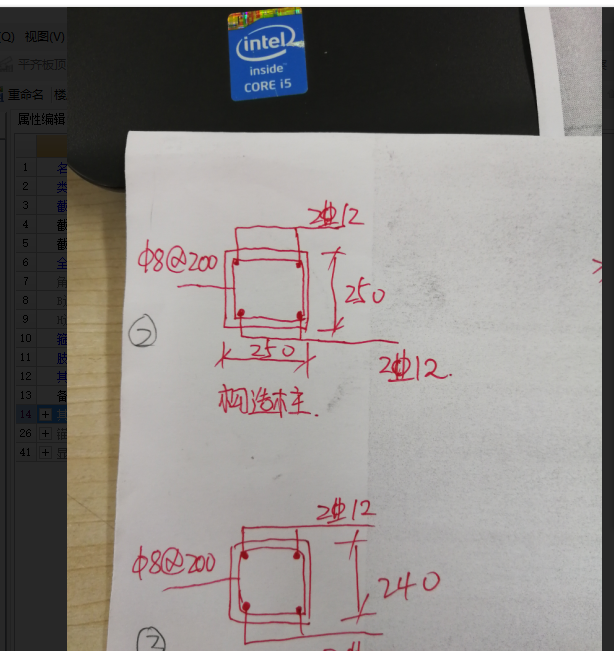 (Q) 视图(V)
平齐板顶
重命名 楼
属性编辑
1 名
2 类
3 截
4 截
5 截
6 全
7
8
9
10 箍
11 肢
12 其
13 备
14 + 其
26 +
41 +
intel
inside™
CORE i5
2⏀12
Φ8@200
250
②
250
2⏀12.
构造柱.
2⏀12
Φ8@200
240
③